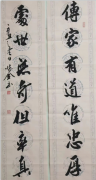 傳家有道惟忠厚
處世無奇但率真